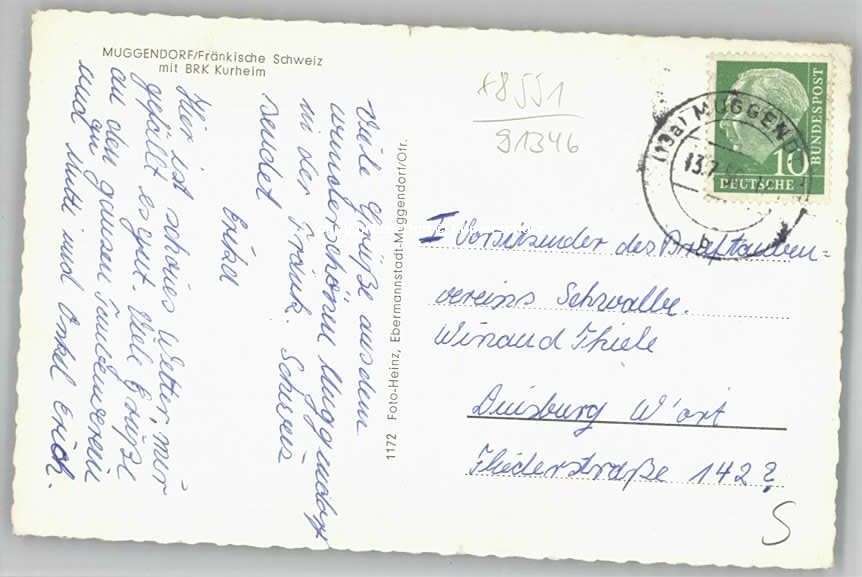 MUGGENDORF/Fränkische Schweiz
mit BRK Kurheim
Viele Grüße aus dem
wunderschönen Muggendorf
in der Fränk. Schweiz
sendet
Erika
Hier ist schönes Wetter, mir
gefällt es gut. Viele Grüße
an den ganzen Taubenverein
und an Mutti und Onkel Erich.
1172 Foto-Heinz, Ebermannstadt-Muggendorf/Ofr.
+8551
91346
(13a) MUGGEND
13.7
b
10
DEUTSCHE
BUNDESPOST
I Vorsitzender des Brieftauben=
vereins Schwalbe.
Winand Thiele
Duisburg W'ort
Fliederstraße 142?
S